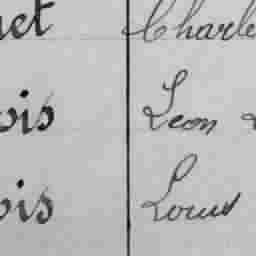 uet Charle
ois Leon
ois Louis